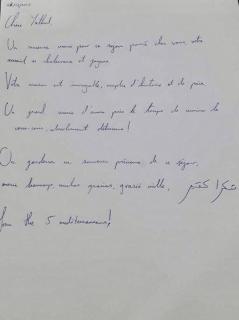 Un immense merci pour ce séjour passé chez vous, votre
accueil si chaleureux et joyeux.
Votre maison est incroyable, remplie d'histoire et de paix.
Un grand merci d'avoir pris le temps de
absolument délicieux!
On gardera un souvenir précieux de ce séjour,
merci beaucoup, muchas gracias, grazie mille, شكرا
from the 5 mediterraneans!